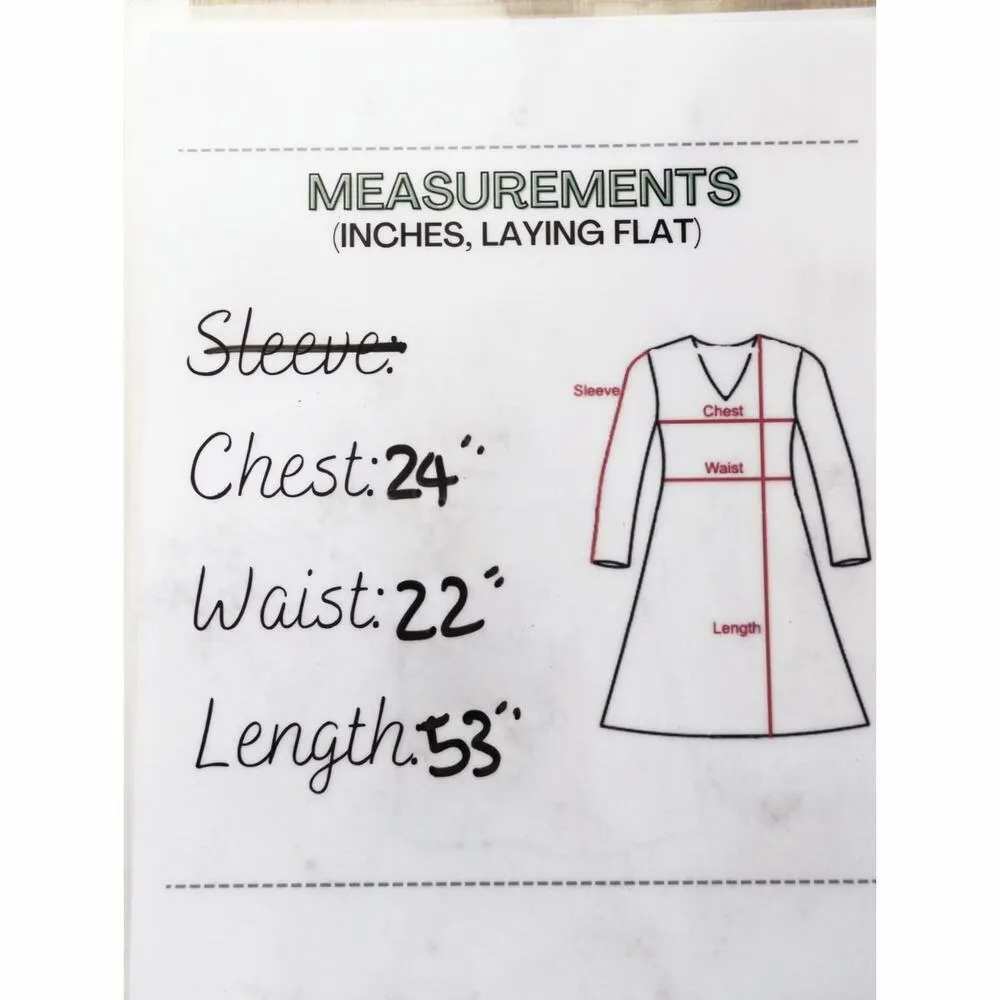 MEASUREMENTS
(INCHES, LAYING FLAT)
Sleeve:
Chest: 24"
Waist: 22"
Length: 53"
Sleeve
Chest
Waist
Length